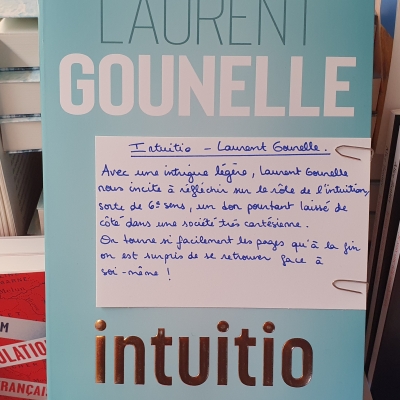 LAURENT
GOUNELLE
Intuitio - Laurent Gounelle.
Avec une intrigue légère, Laurent Gounelle
nous incite à réfléchir sur le rôle de l'intuition,
sorte de 6e sens, un don pourtant laissé de
côté dans une société très cartésienne.
On tourne si facilement les pages qu'à la fin
on est surpris de se retrouver face à
soi-même !
intuitio
M
ULATIO
FRANÇAIS